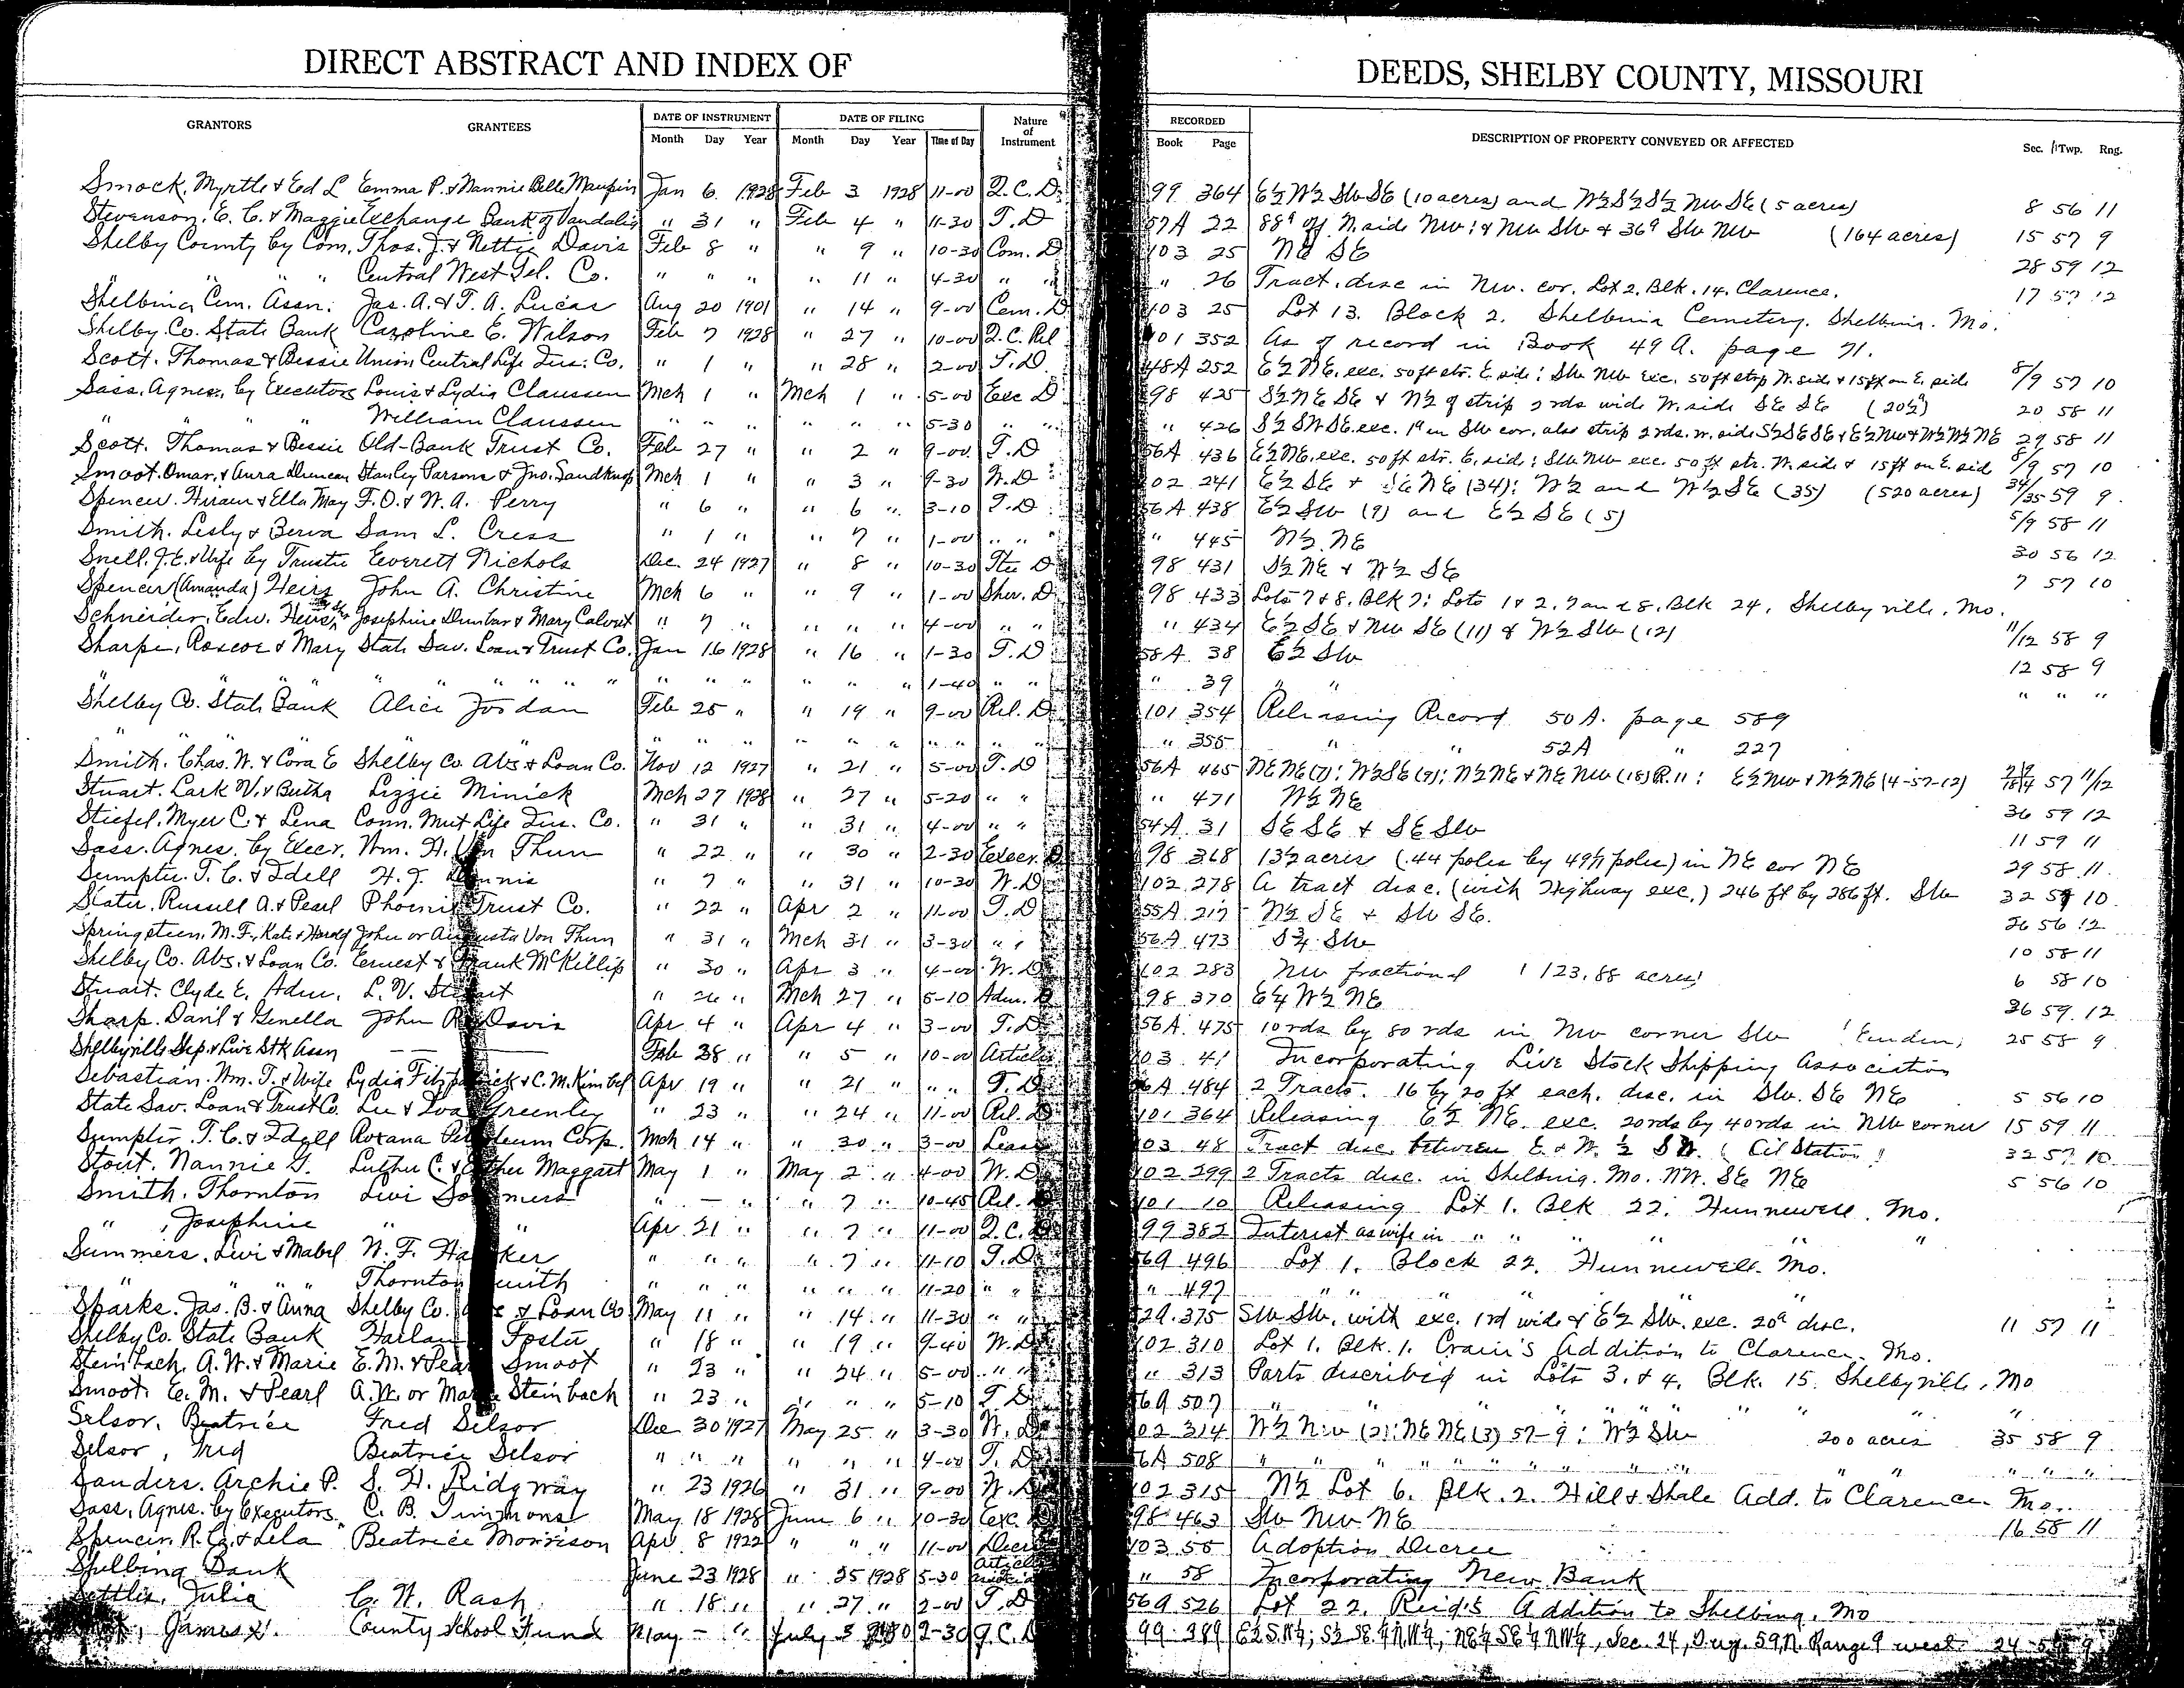 DIRECT ABSTRACT AND INDEX OF DEEDS, SHELBY COUNTY, MISSOURI
GRANTORS GRANTEES DATE OF INSTRUMENT Month Day Year DATE OF FILING Month Day Year Time of Day Nature of Instrument RECORDED Book Page DESCRIPTION OF PROPERTY CONVEYED OR AFFECTED Sec. Twp. Rng.
Smock, Myrtle & Ed L Emma P. & Nannie Belle Maupin Jan 6 1928 Feb 3 1928 11-00 Q.C.D. 99 364 E½ W½ SW SE (10 acres) and N½ S½ S½ NW SE (5 acres) 8 56 11
Stevenson, E. C. & Maggie Exchange Bank of Vandalia " 31 " Feb 4 " 11-30 T.D 57A 22 88ᵃ off N. side NW; & NW SW & 36ᵃ SW NW (164 acres) 15 57 9
Shelby County by Com. Thos. J. & Nettie Davis Feb 8 " " 9 " 10-30 Com. D 103 25 NE SE 28 59 12
" " " " Central West Tel. Co. " " " " 11 " 4-30 " " " 26 Tract. disc in NW. cor. Lot 2. Blk. 14. Clarence. 17 57 12
Shelbina Cem. Assn. Jas. A. & T. A. Lucas Aug 20 1901 " 14 " 9-00 Cem. D 103 25 Lot 13. Block 2. Shelbina Cemetery. Shelbina. Mo.
Shelby. Co. State Bank Caroline E. Wilson Feb 7 1928 " 27 " 10-00 Q.C. Rel 101 352 As of record in Book 49 A. page 71.
Scott. Thomas & Bessie Union Central Life Ins. Co. " 1 " " 28 " 2-00 T.D. 48A 252 E½ NE. exc. 50 ft str. E. side; SW NW exc. 50 ft strp W. side & 15 ft on E. side 8/9 57 10
Sass, Agnes, by Executors Louis & Lydia Claussen Mch 1 " Mch 1 " 5-00 Exe D 98 425 S½ NE SE & N½ of strip 2 rds wide W. side SE SE (20½ᵃ) 20 58 11
" " " William Claussen " " " " " " 5-30 " " " 426 S½ SW SE. exc. 1ᵃ in SW cor. also strip 2 rds. w. side S½ SE SE & E½ NW & W½ W½ NE 29 58 11
Scott. Thomas & Bessie Old-Bank Trust Co. Feb 27 " " 2 " 9-00 T.D 56A 436 E½ NE. exc. 50 ft str. E. side; SW NW exc. 50 ft str. W. side & 15 ft on E. sid 8/9 57 10
Smoot. Omar. & Aura Duncan Stanley Parsons & Jno. Sandkuhl Mch 1 " " 3 " 9-30 W.D 102 241 E½ SE & SE NE (34); W½ and W½ SE (35) (520 acres) 34/35 59 9
Spencer. Hiram & Ella May F. O. & W. A. Perry " 6 " " 6 " 3-10 T.D 56A 438 E½ SW (9) and E½ SE (5) 5/9 58 11
Smith. Lesly & Berva Sam L. Cress " 1 " " 7 " 1-00 " " " 445 N½ NE 30 56 12
Snell. J.E. & Wife by Trustee Everett Nichols Dec. 24 1927 " 8 " 10-30 Ttee D 98 431 S½ NE & N½ SE 7 57 10
Spencer (Amanda) Heirs John A. Christine Mch 6 " " 9 " 1-00 Sher. D 98 433 Lots 7 & 8. Blk 7; Lots 1 & 2. 7 and 8. Blk 24. Shelbyville. Mo.
Schneider, Edw. Heirs Josephine Dunbar & Mary Calvert " 7 " " " " 4-00 " " " 434 E½ SE & NW SE (11) & W½ SW (12) 11/12 58 9
Sharpe, Roscoe & Mary State Sav. Loan & Trust Co. Jan 16 1928 " 16 " 1-30 T.D 58A 38 E½ SW 12 58 9
" " " " " " " " " " " " 1-40 " " " 39 " " " " "
Shelby Co. State Bank Alice Jordan Feb 25 " " 19 " 9-00 Rel. D 101 354 Releasing Record 50 A. page 589
" " " " " " " " " " " " " " 355 " " 52A " 227
Smith. Chas. W. & Cora E Shelby Co. Abs & Loan Co. Nov 12 1927 " 21 " 5-00 T.D 56A 465 NE NE (7); W½ SE (9); N½ NE & NE NW (18) R. 11; E½ NW & W½ NE (4-57-12) 57 11/12
Stuart. Lark V. & Butha Lizzie Minick Mch 27 1928 " 27 " 5-20 " " " 471 W½ NE 36 59 12
Stiefel. Myer C. & Lena Conn. Mut Life Ins. Co. " 31 " " 31 " 4-00 " " 54A 31 SE SE & SE SW 11 59 11
Sass. Agnes. by Execr. Wm. H. Von Thun " 22 " " 30 " 2-30 Execr. D 98 368 13½ acres (.44 poles by 49 1/11 poles) in NE cor NE 29 58 11
Sumpter. T. C. & Idell H. J. " 7 " " 31 " 10-30 W.D 102 278 A tract disc. (with Highway exc.) 246 ft by 286 ft. SW 32 57 10
Slater. Russell A. & Pearl Phoenix Trust Co. " 22 " Apr 2 " 11-00 T.D 55A 217 N½ SE & SW SE. 26 56 12
Springsteen, M. F., Kate & Harold John or Augusta Von Thun " 31 " Mch 31 " 3-30 " " 56A 473 S¾ SW 10 58 11
Shelby Co. Abs. & Loan Co. Ernest & Frank McKillip " 30 " Apr 3 " 4-00 W.D 102 283 NW fractional (123.88 acres) 6 58 10
Stuart. Clyde E. Adm. L. V. Stuart " 26 " Mch 27 " 5-10 Adm. D 98 370 E¼ W½ NE 36 59 12
Sharp. Davil & Genella John R. Davis Apr 4 " Apr 4 " 3-00 T.D 56A 475 10 rds by 80 rds in NW corner SW 25 58 9
Shelbyville Shp. & Live Stk Assn — — Feb 28 " " 5 " 10-00 Article 103 41 Incorporating Live Stock Shipping Association
Sebastian. Wm. T. & Wife Lydia Fitzpatrick & C. M. Kimbel Apr 19 " " 21 " " " T. D 56A 484 2 Tracts. 16 by 20 ft each. disc. in SW. SE NE 5 56 10
State Sav. Loan & Trust Co. Lee & Iva Greenley " 23 " " 24 " 11-00 Rel. D 101 364 Releasing E½ NE. exc. 20 rds by 40 rds in NW corner 15 59 11
Sumpter. T. C. & Idell Roxana Petroleum Corp. Mch 14 " " 30 " 3-00 Lease 103 48 Tract disc. between E. & W. ½ SW. (Oil Station) 32 57 10
Stout. Nannie G. Luther C. & Esther Maggart May 1 " May 2 " 4-00 W. D 102 299 2 Tracts disc. in Shelbina. Mo. NW. SE NE 5 56 10
Smith. Thornton Levi Sommers " — " " 7 " 10-45 Rel. D 101 10 Releasing Lot 1. Blk 22. Hunnewell. Mo.
" , Josephine " " Apr 21 " " 7 " 11-00 Q.C.D 99 382 Interest as wife in " " " " "
Summers, Levi & Mabel W. F. Hawker " " " " 7 " 11-10 T.D 56A 496 Lot 1. Block 22. Hunnewell. Mo.
" " " Thornton Smith " " " " " " 11-20 " " " 497 " " " " "
Sparks. Jas. B. & Anna Shelby Co. Abs & Loan Co May 11 " " 14 " 11-30 " " 52A 375 SW SW. with exc. 1 rd wide & E½ SW. exc. 20ᵃ disc. 11 57 11
Shelby Co. State Bank Harlan Foster " 18 " " 19 " 9-40 W.D 102 310 Lot 1. Blk. 1. Crain's Addition to Clarence. Mo.
Steinbach, A. W. & Marie E. M. & Pearl Smoot " 23 " " 24 " 5-00 " " " 313 Parts described in Lots 3. & 4. Blk. 15. Shelbyville, Mo
Smoot. E. M. & Pearl A. W. or Marie Steinbach " 23 " " " " 5-10 T. D 56A 507 " " " " " " "
Selsor, Beatrice Fred Selsor Dec 30 1927 May 25 " 3-30 W. D 102 314 W½ NW (2); NE NE (3) 57-9; W½ SW 200 acres 35 58 9
Selsor, Fred Beatrice Selsor " " " " " " 4-00 T. D 56A 508 " " " " " " " " " " "
Sanders. Archie P. S. H. Ridgway " 23 1926 " 31 " 9-00 W. D 102 315 N½ Lot 6. Blk. 2. Hill & Shale Add. to Clarence Mo.
Sass, Agnes. by Executors C. B. Timmons May 18 1928 June 6 " 10-30 Exc. D 98 463 SW NW NE 16 58 11
Spencer, R. G. & Lela Beatrice Morrison Apr 8 1922 " " " 11-00 Decree 103 55 Adoption Decree
Shelbina Bank June 23 1928 " 25 1928 5-30 Articles " 58 Incorporating New Bank
Settles, Julia C. W. Rash " 18 " " 27 " 2-00 T. D 56A 526 Lot 22. Reid's Addition to Shelbina. Mo
James County School Fund May - " July 3 2-30 Q.C.D 99 389 E½ S.W¼; S½ SE¼ N.W¼; NE¼ SE¼ NW¼, Sec. 24, Twp. 59, N. Range 9 west. 24 59 9